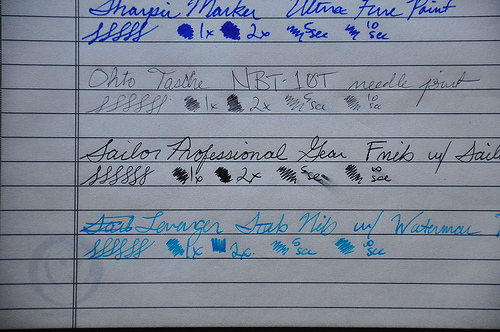 Sharpie Marker Ultra Fine Point
SSSSS 1x 2x 5 sec 10 sec
Ohto Tasche NBT-10T needle point
SSSSSS 1x 2x 5 sec 10 sec
Sailor Professional Gear Fnib w/ Sail
SSSSSS 1x 2x 5 sec 10 sec
Levenger Stub Nib w/ Waterman
SSSSSS 1x 2x. 5 sec 10 sec